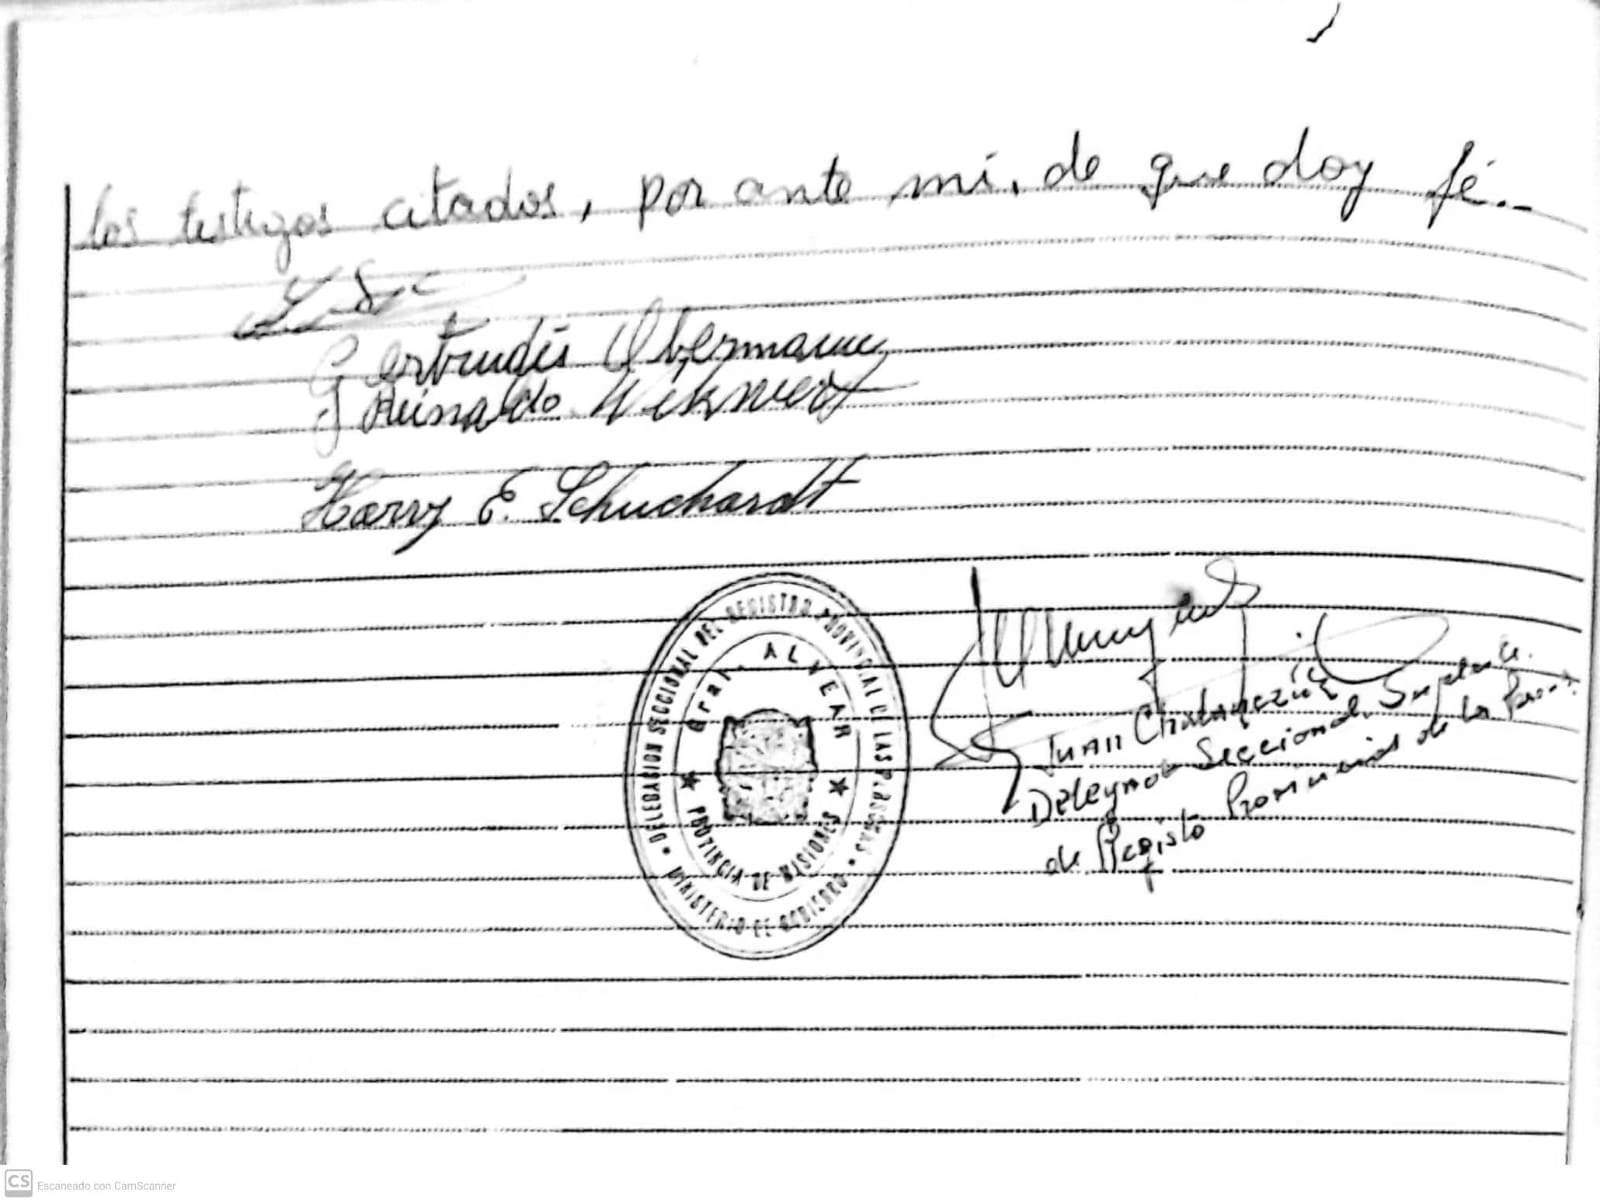 los testigos citados, por ante mí, de que doy fé..
Gertrudis Obermann
Reinaldo
Harry E. Schuchardt
DELEGACION SECCIONAL DEL REGISTRO PROVINCIAL DE LAS PERSONAS
Gral. ALVEAR
PROVINCIA DE MISIONES
MINISTERIO DE GOBIERNO
Juan
Delegado Seccional Suplente
de Registo Provincial de Las
CS Escaneado con CamScanner